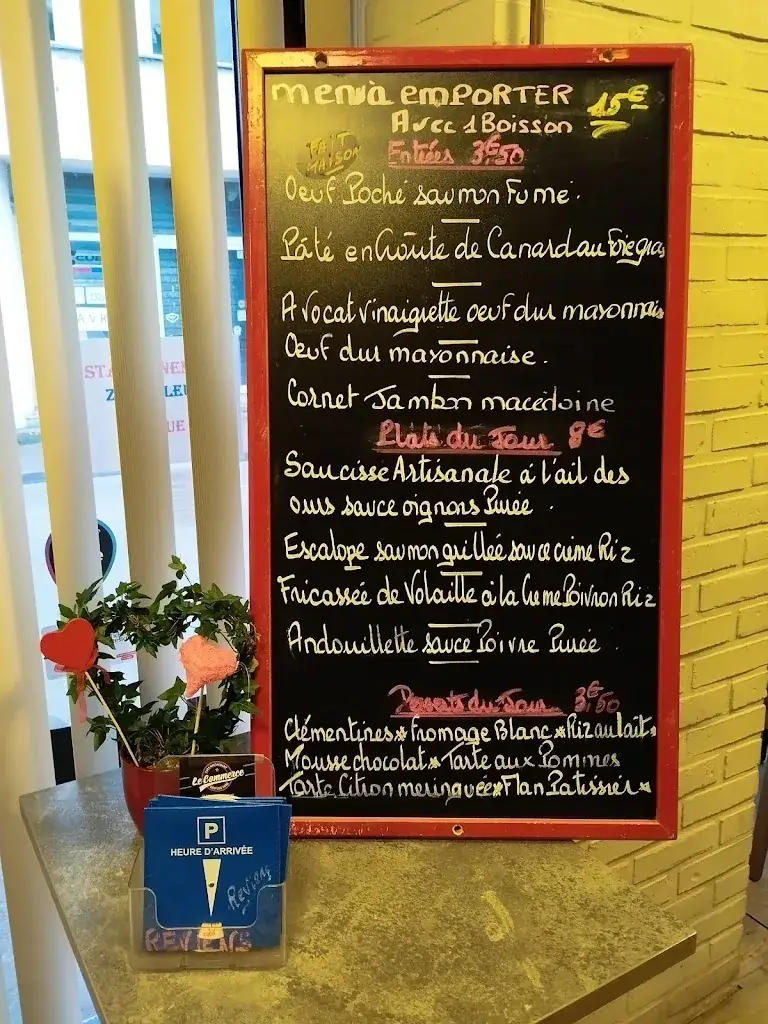 menu à emPORTER 15€
Avec 1 Boisson
FAIT
MAISON
Entrées 3€50
Oeuf Poché saumon Fumé.
Pâté en Croûte de Canard au Foie gras
Avocat vinaigrette oeuf dur mayonnais
Oeuf dur mayonnaise.
Cornet Jambon macédoine
Plats du Jour 8€
Saucisse Artisanale à l'ail des
ours sauce oignons Purée.
Escalope saumon grillée sauce crème Riz
Fricassée de Volaille à la Creme Poivron Riz
Andouillette sauce Poivre Purée.
Desserts du Jour 3€50
Clémentines * fromage Blanc * Riz au lait *
Mousse chocolat * Tarte aux Pommes
Tarte Citron meringuée * Flan Patissier *
Le Commerce
P
HEURE D'ARRIVÉE
Reviens
REVIENS